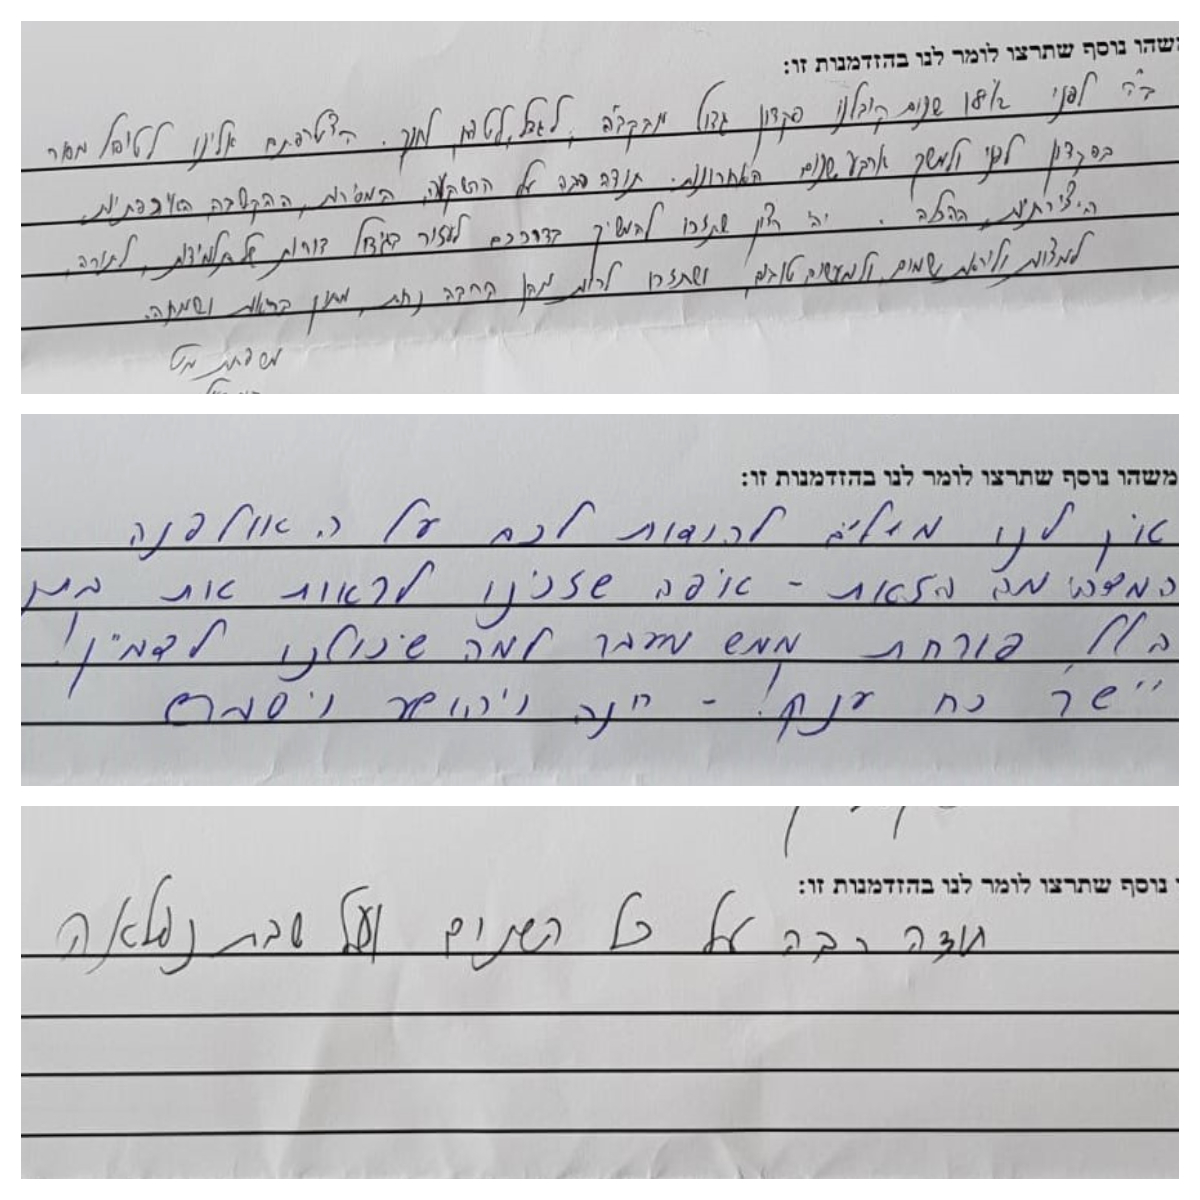 משהו נוסף שתרצו לומר לנו בהזדמנות זו:
ב"ה לפני שנים קיבלנו פקדון גדול מהקב"ה, לגדל, לטפח, לחנך. הצטרפתם אלינו לטיפול מסור
בפקדון לפני ולמשך ארבע שנים האחרונות. תודה רבה על ההשקעה, המסירות, ההקשבה, האיכפתיות,
היצירתיות, ההלב. יהי רצון שתזכו להמשיך בדרככם לעזור בגידול דורות של תלמידות, לתורה,
למצוות וליראת שמים, ולמעשים טובים, ושתזכו לרוות מהן הרבה נחת, מתוך בריאות ושמחה.
משפחת
משהו נוסף שתרצו לומר לנו בהזדמנות זו:
אין לנו מילים להודות לכם על האולפנה
המדהימה הזאת - איפה שזכינו לראות את בתנו
פורחת ממש מעבר למה שיכולנו לדמיין!
יישר כח ענק! - חנה ויהושע
נוסף שתרצו לומר לנו בהזדמנות זו:
תודה רבה על כל השנים ועל שבת נפלאה